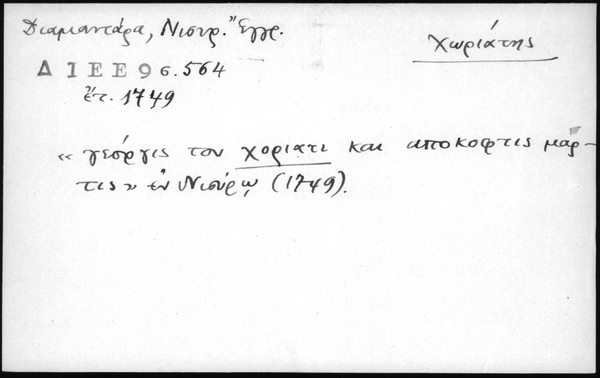 Διαμαντάρα, Νισυρ. Ἔγγρ.
χωριάτης
ΔΙΕΕ 9 σ. 564
ἔτ. 1749
« γεόργις του χοριατι και αποκοφτις μάρ-
τις » ἐν Νισύρῳ (1749).